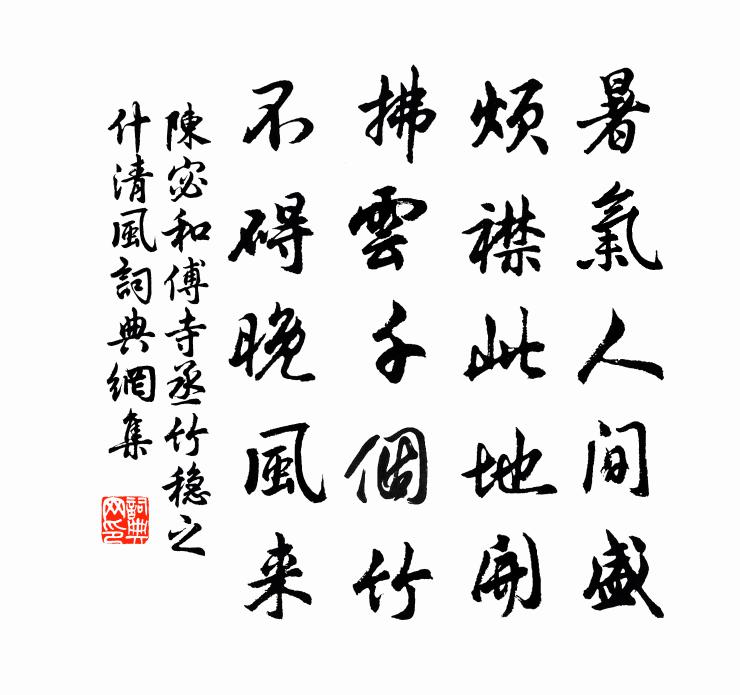 暑氣人間盛
煩襟此地開
拂雲千個竹
不碍晚風来
陳宓和傅寺丞竹穏之
什清風詞典網集
詞典
网印